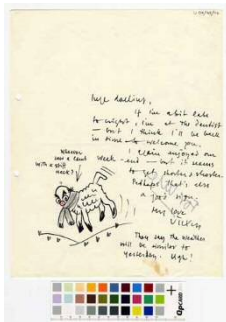 Huge dallins,
If I'm a bit late
to-night, I'm at the dentist
— but I think I'll be back
in time to welcome you.
I again enjoyed our
week-end — but it seems
to get shorter & shorter.
Perhaps that's also
a good sign.
Huge love
They say the weather
will be similar to
yesterday. Ugh!
Whoever
saw a lamb
with a stiff
neck?